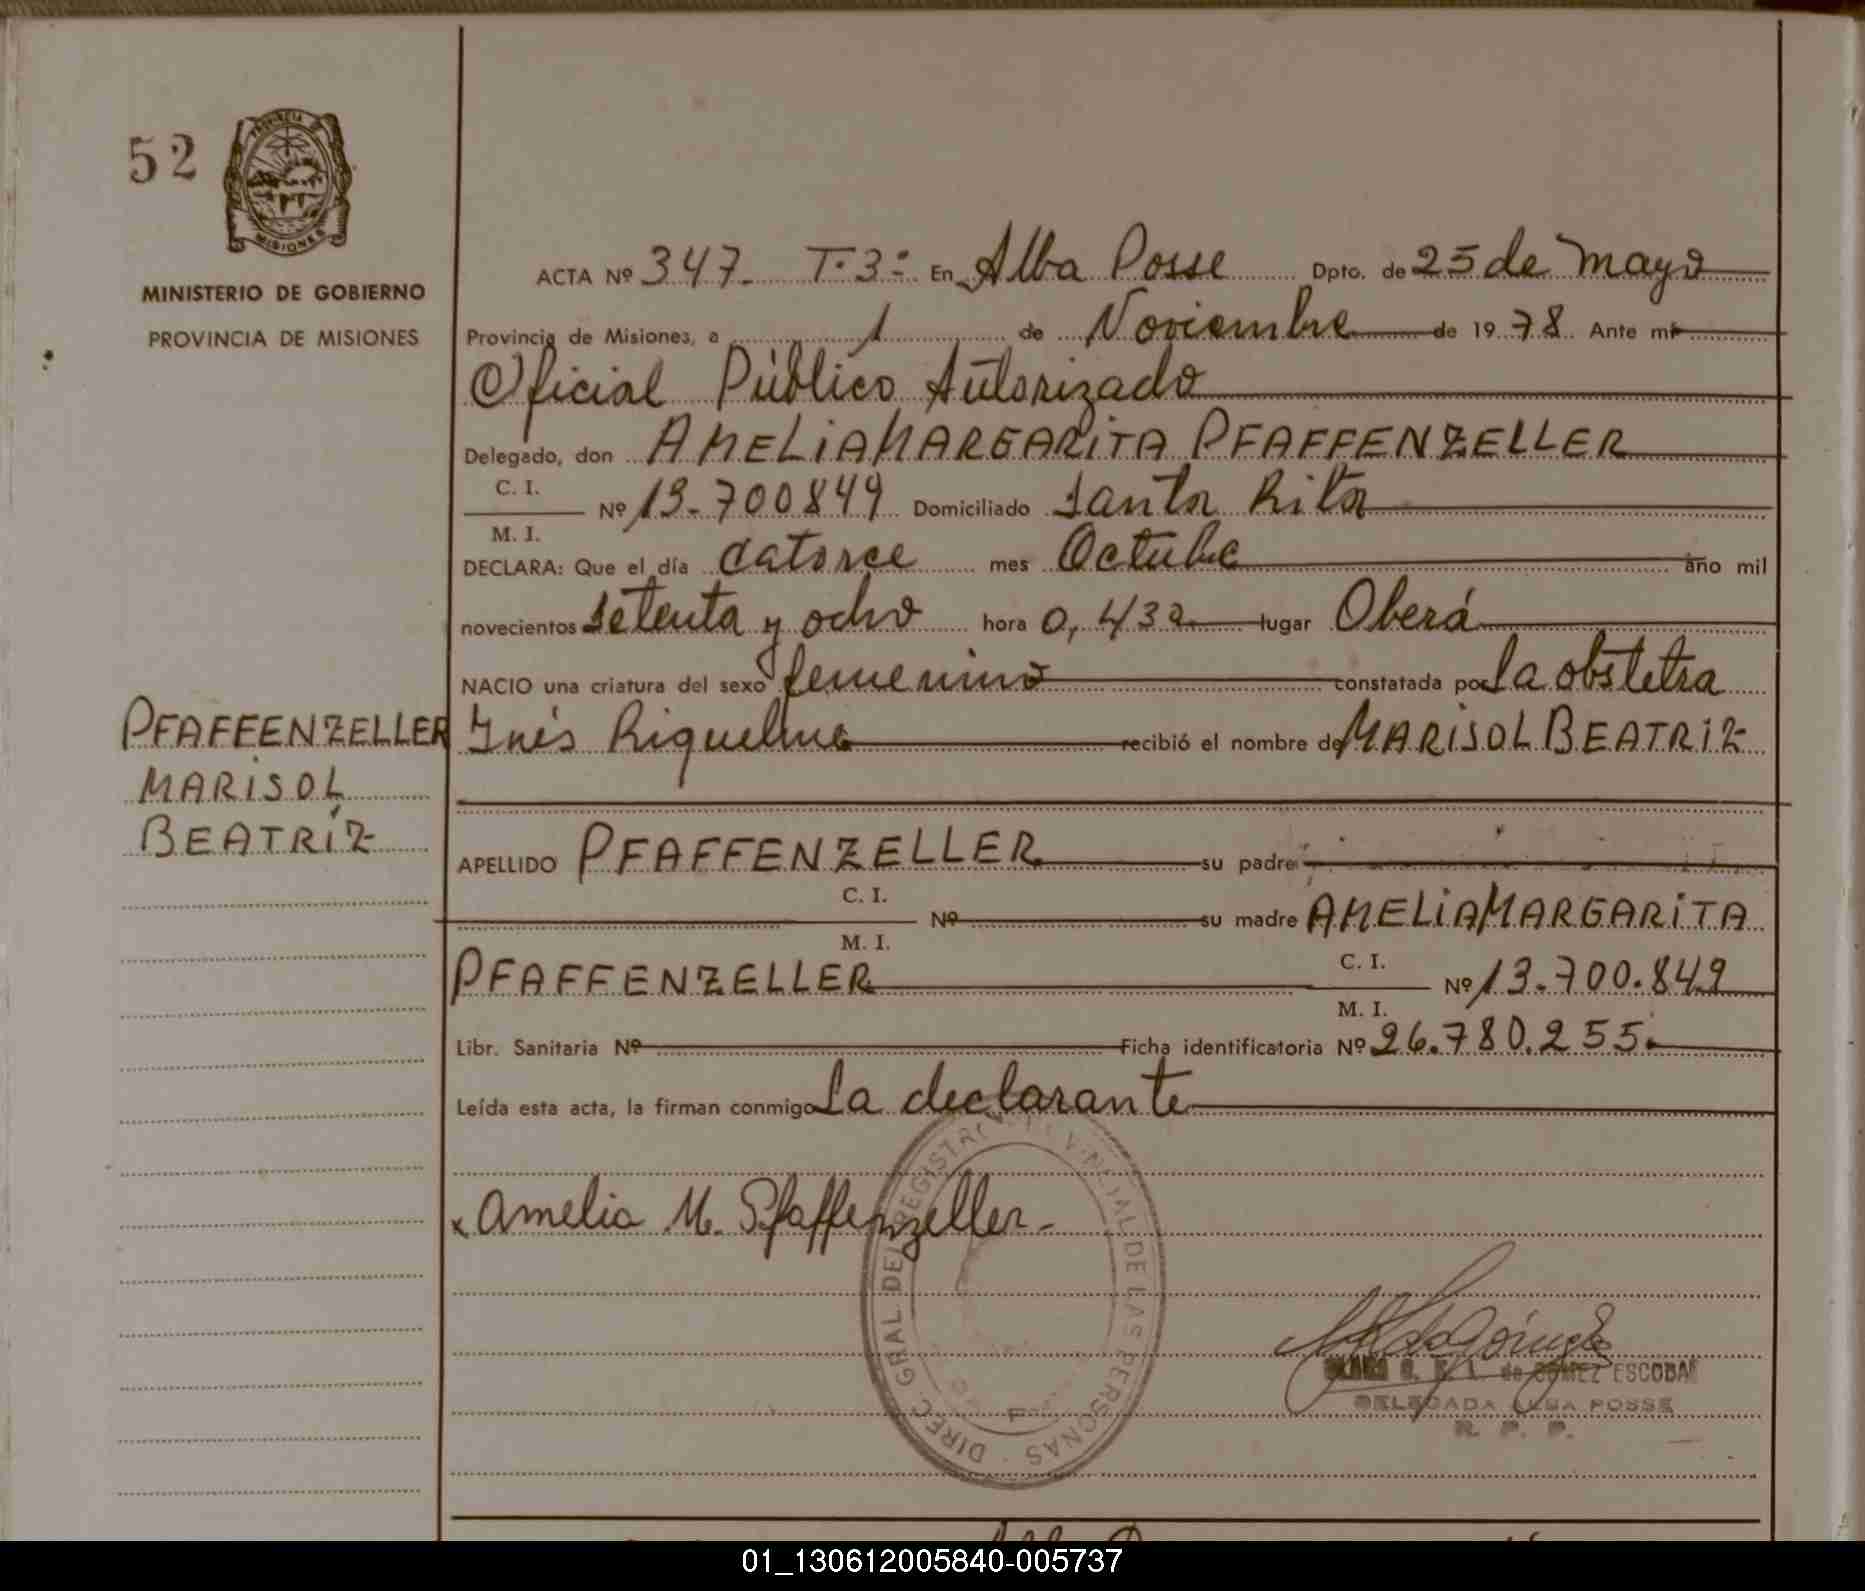 52
PROVINCIA DE
MISIONES
MINISTERIO DE GOBIERNO
PROVINCIA DE MISIONES
PFAFFENZELLER
MARISOL
BEATRÍZ
ACTA Nº 347- T.3º En Alba Posse Dpto. de 25 de Mayo
Provincia de Misiones, a 1 de Noviembre de 1978 Ante mí
Oficial Público Autorizado
Delegado, don AMELIA MARGARITA PFAFFENZELLER
C. I.
Nº 13-700849 Domiciliado Santa Rita
M. I.
DECLARA: Que el día catorce mes Octubre año mil
novecientos setenta y ocho hora 0,43 lugar Oberá
NACIO una criatura del sexo femenino constatada por la obstetra
Inés Riquelme recibió el nombre de MARISOL BEATRIZ
APELLIDO PFAFFENZELLER su padre
C. I.
Nº su madre AMELIA MARGARITA
M. I.
PFAFFENZELLER
C. I.
Nº 13.700.849
M. I.
Libr. Sanitaria Nº Ficha identificatoria Nº 26.780.255.
Leída esta acta, la firman conmigo La declarante
x Amelia M. Pfaffenzeller-
DIREC. GRAL DEL REGISTRO PROVINCIAL DE LAS PERSONAS
de GOMEZ ESCOBAR
DELEGADA ALBA POSSE
R. P. P.
01_130612005840-005737